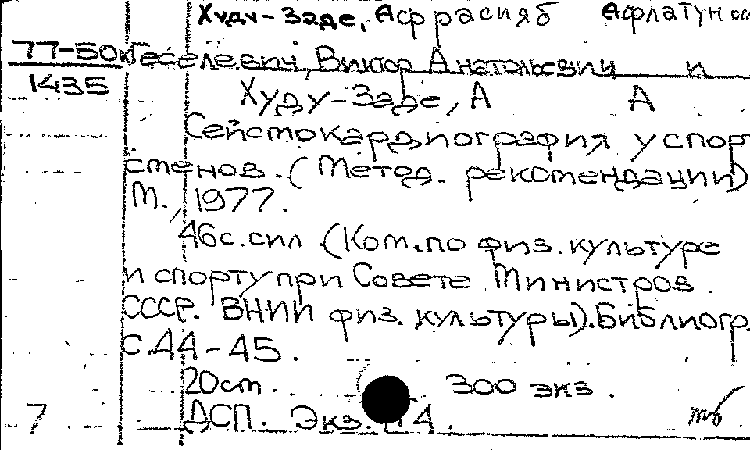 Худу-Заде, Асфрасияб Афлатунов
77-50к Геселевич, Виктор Анатольевич и
1435
Худу-Заде, А А
Сейсмокардиография у спорт
сменов. (Метод. рекомендации)
М., 1977.
46с. сил. (Ком. по физ. культуре
и спорту при Совете Министров
СССР. ВНИИ физ. культуры). Библиогр.
с. 44-45.
20см. 300 экз.
7 ДСП. Экз. 4.